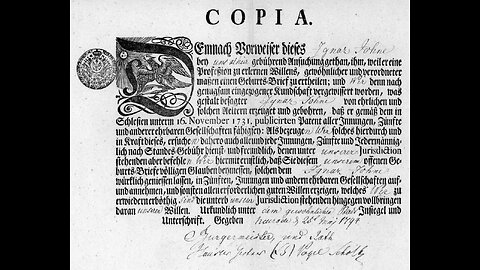 COPIA.
Demnach Vorweiser dieses Ignaz Johne
bey uns allein gebührend Ansuchung gethan, ihm, weil er eine
Profeßion zu erlernen Willens, gewöhnlicher und verordneter
maßen einen Geburts-Brief zu ertheilen; und Wir denn nach
genugsam eingezogener Kundschaft vergewissert worden, was
gestalt besagter Ignaz Johne von ehrlichen und
solchen Aeltern erzeuget und gebohren, daß er gemäß dem in
Schlesien unterm 16. November 1731. publicirten Patent aller Innungen, Zünfte
und anderer ehrbaren Gesellschaften fähig ist: Als bezeugen Wir solches hierdurch und
in Kraft dieses, ersuchen dahero auch alle und jede Innungen, Zünfte und Jedermänniglich
nach Standes Gebühr dienst- und freundlich, denen unter unserer Jurisdiction
stehenden aber befehlen Wir hiermit ernstlich, daß Sie diesem unserem offenen Geburts-Briefe
völligen Glauben beymessen, solchen dem Ignaz Johne
würklich geniessen lassen, in Zünften, Innungen und andern ehrbaren Gesellschaften auf-
und annehmen, und sonsten allen erforderlichen guten Willen erzeigen, welches Wir zu
erwiedern erböthig sind, die unter unserer Jurisdiction stehenden hingegen vollbringen
daran unseren Willen. Urkundlich unter dem gewöhnlichen Insiegel und
Unterschrift. Gegeben den 28 May 1794.
Burgermeister und Rath
(LS) Vogel